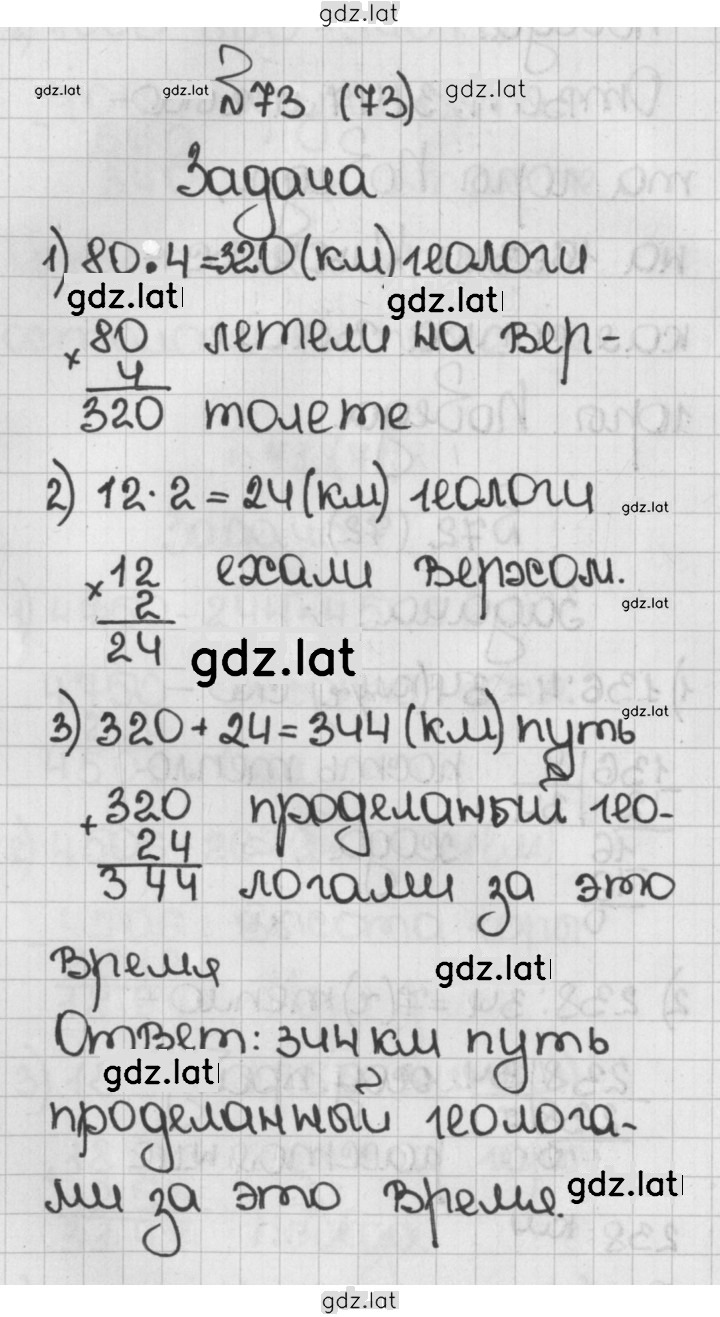 gdz.lat
gdz.lat gdz.lat №73 (73) gdz.lat
Задача
1) 80·4=320(км) геологи
gdz.lat gdz.lat
×80 летели на вер-
4
320 толете
2) 12·2=24(км) геологи
gdz.lat
×12 ехали верхом.
2
gdz.lat
24 gdz.lat
gdz.lat
3) 320+24=344(км) путь
+320 проделаный гео-
24
344 логами за это
время gdz.lat
Ответ: 344 км путь
gdz.lat
проделанный геолога-
ми за это время. gdz.lat
gdz.lat